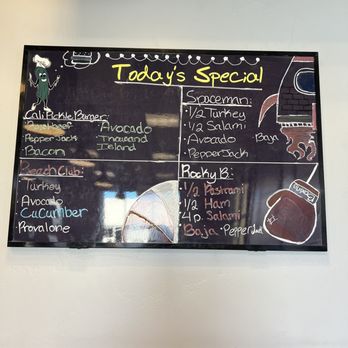 Today's Special
Cali Pickle Burger:
Roast beef Avocado
PepperJack Thousand
Bacon Island
Spaceman:
1/2 Turkey
1/2 Salami
Avocado Baja
PepperJack
Beach Club:
Turkey
Avocado
Cucumber
Provalone
Rocky B:
1/2 Pastrami
1/2 Ham
4p Salami
Baja PepperJack